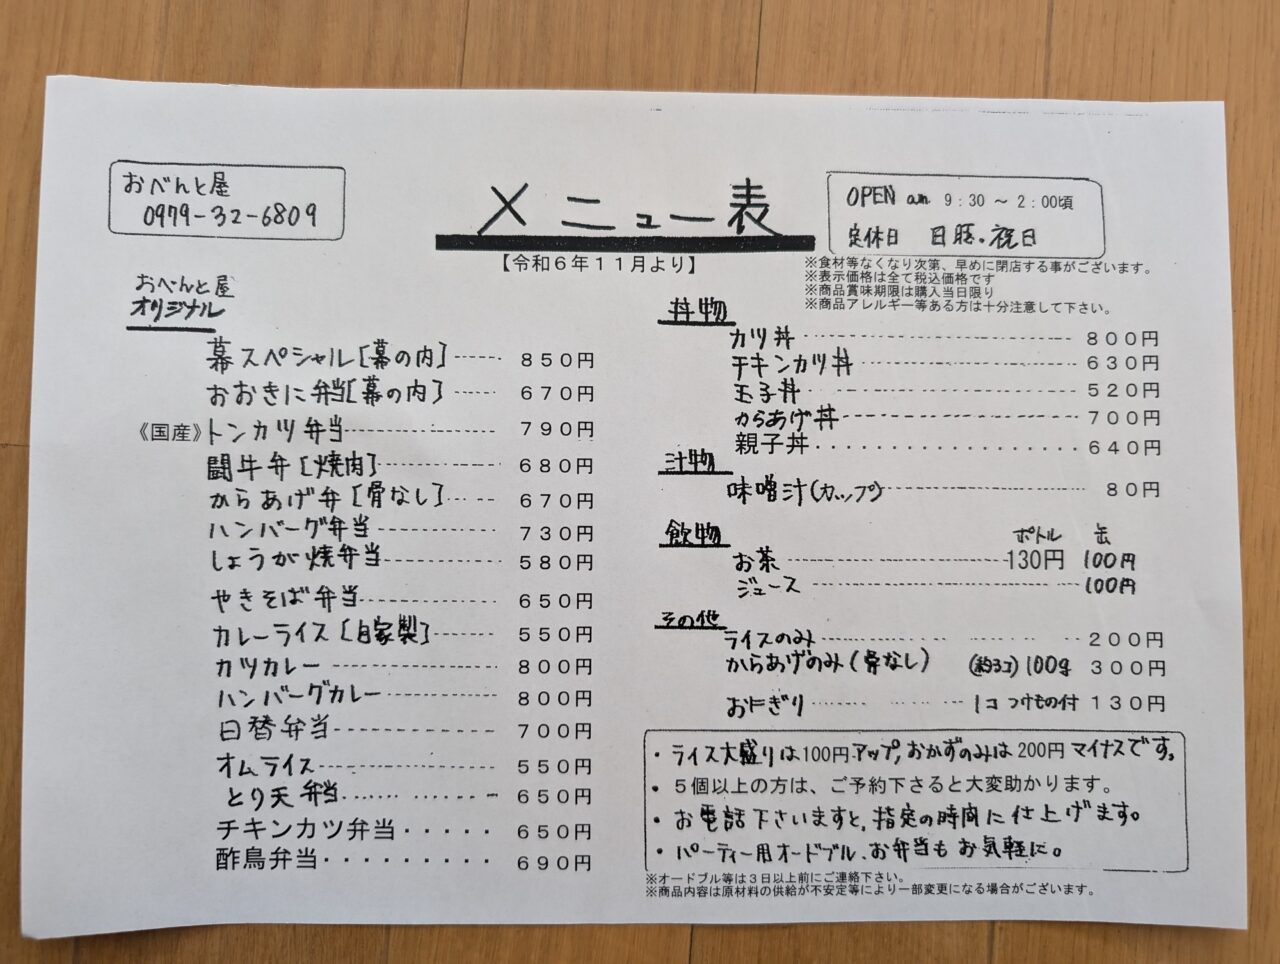 おべんと屋
0979-32-6809
メニュー表
【令和6年11月より】
OPEN am 9:30 ～ 2:00頃
定休日 日曜・祝日
※食材等なくなり次第、早めに閉店する事がございます。
※表示価格は全て税込価格です
※商品賞味期限は購入当日限り
※商品アレルギー等ある方は十分注意して下さい。
おべんと屋
オリジナル
幕スペシャル[幕の内] 850円
おおきに弁当[幕の内] 670円
《国産》トンカツ弁当 790円
闘牛弁[焼肉] 680円
からあげ弁[骨なし] 670円
ハンバーグ弁当 730円
しょうが焼弁当 580円
やきそば弁当 650円
カレーライス[自家製] 550円
カツカレー 800円
ハンバーグカレー 800円
日替弁当 700円
オムライス 550円
とり天弁当 650円
チキンカツ弁当・・・・・650円
酢鳥弁当・・・・・・・・・690円
丼物
カツ丼 800円
チキンカツ丼 630円
玉子丼 520円
からあげ丼 700円
親子丼 640円
汁物
味噌汁(カップ) 80円
飲物 ボトル 缶
お茶 130円 100円
ジュース 100円
その他
ライスのみ 200円
からあげのみ(骨なし) (約3コ)100g 300円
おにぎり 1コ つけもの付 130円
・ライス大盛りは100円アップ,おかずのみは200円マイナスです。
・5個以上の方は、ご予約下さると大変助かります。
・お電話下さいますと,指定の時間に仕上げます。
・パーティー用オードブル、お弁当もお気軽に。
※オードブル等は3日以上前にご連絡下さい。
※商品内容は原材料の供給が不安定等により一部変更になる場合がございます。